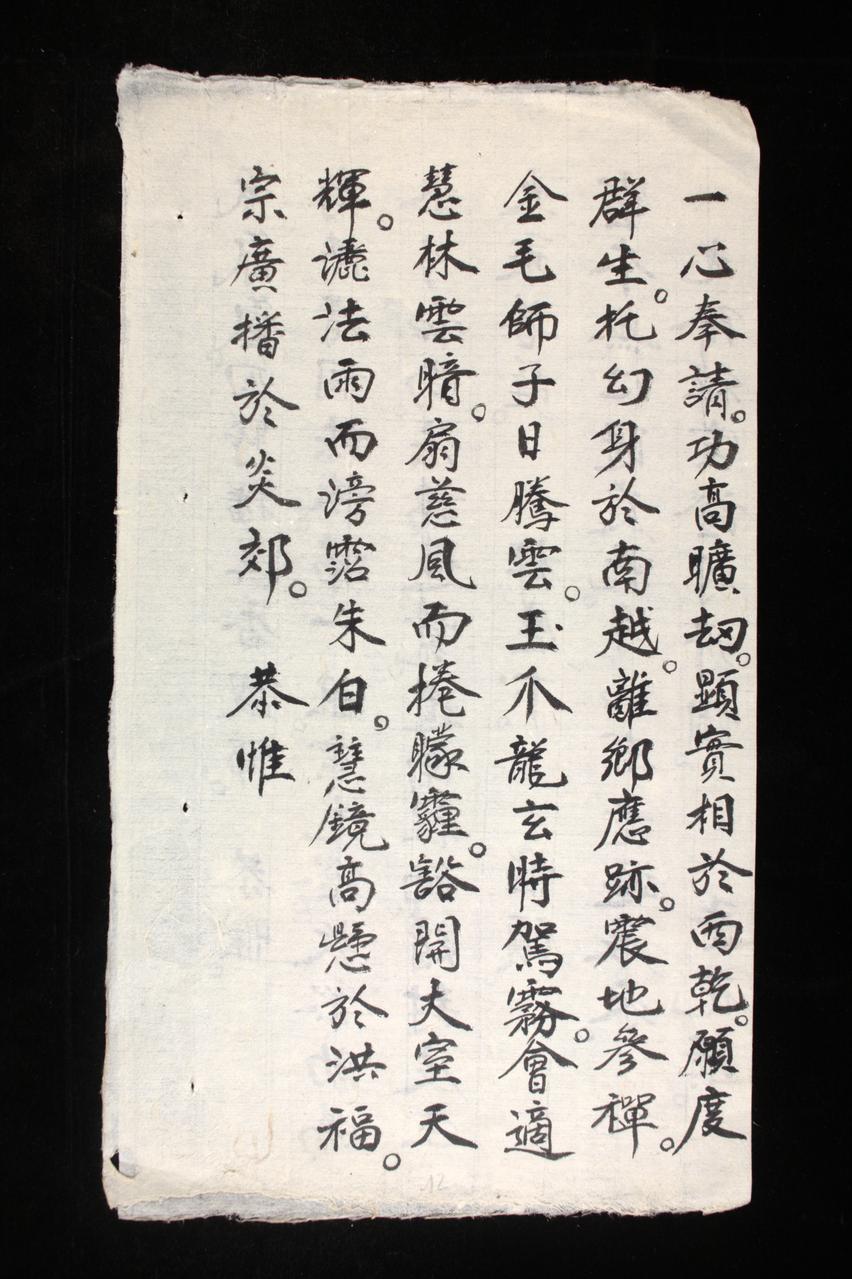 一心奉請。功高曠刼。顕實相於西乾。願度
群生。托幻身於南越。離鄉應跡。震地參禪。
金毛師子日騰雲。玉爪龍玄時駕霧。會適
慧林雲暗。扇慈風而捲矇霾。豁開大室天
輝。灑法雨而滂霑朱白。慧鏡高懸於洪福。
宗廣播於炎郊。　恭惟
12